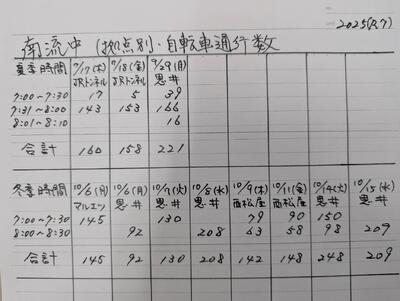 2025(R.7)
南流中 (拠点別・自転車通行数
夏季時間 9/17(木) 9/18(金) 9/29(月)
JRトンネル JRトンネル 思井
7:00~7:30 17 5 39
7:31~8:00 143 153 166
8:01~8:10 16
合計 160 158 221
冬季時間 10/6(月) 10/6(月) 10/7(火) 10/8(水) 10/9(木) 10/11(金) 10/14(火) 10/15(水)
マルエツ 思井 思井 思井 西松屋 西松屋 思井 思井
7:00~7:30 145 130 79 90 150
8:00~8:30 92 208 63 58 98 209
合計 145 92 130 208 142 148 248 209